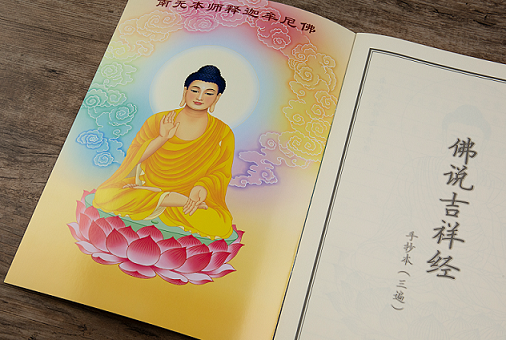 南无本师释迦牟尼佛
佛说吉祥经
手抄本（三遍）